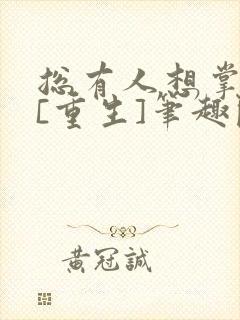 总有人想掌
[重生]笔趣
黄冠誠